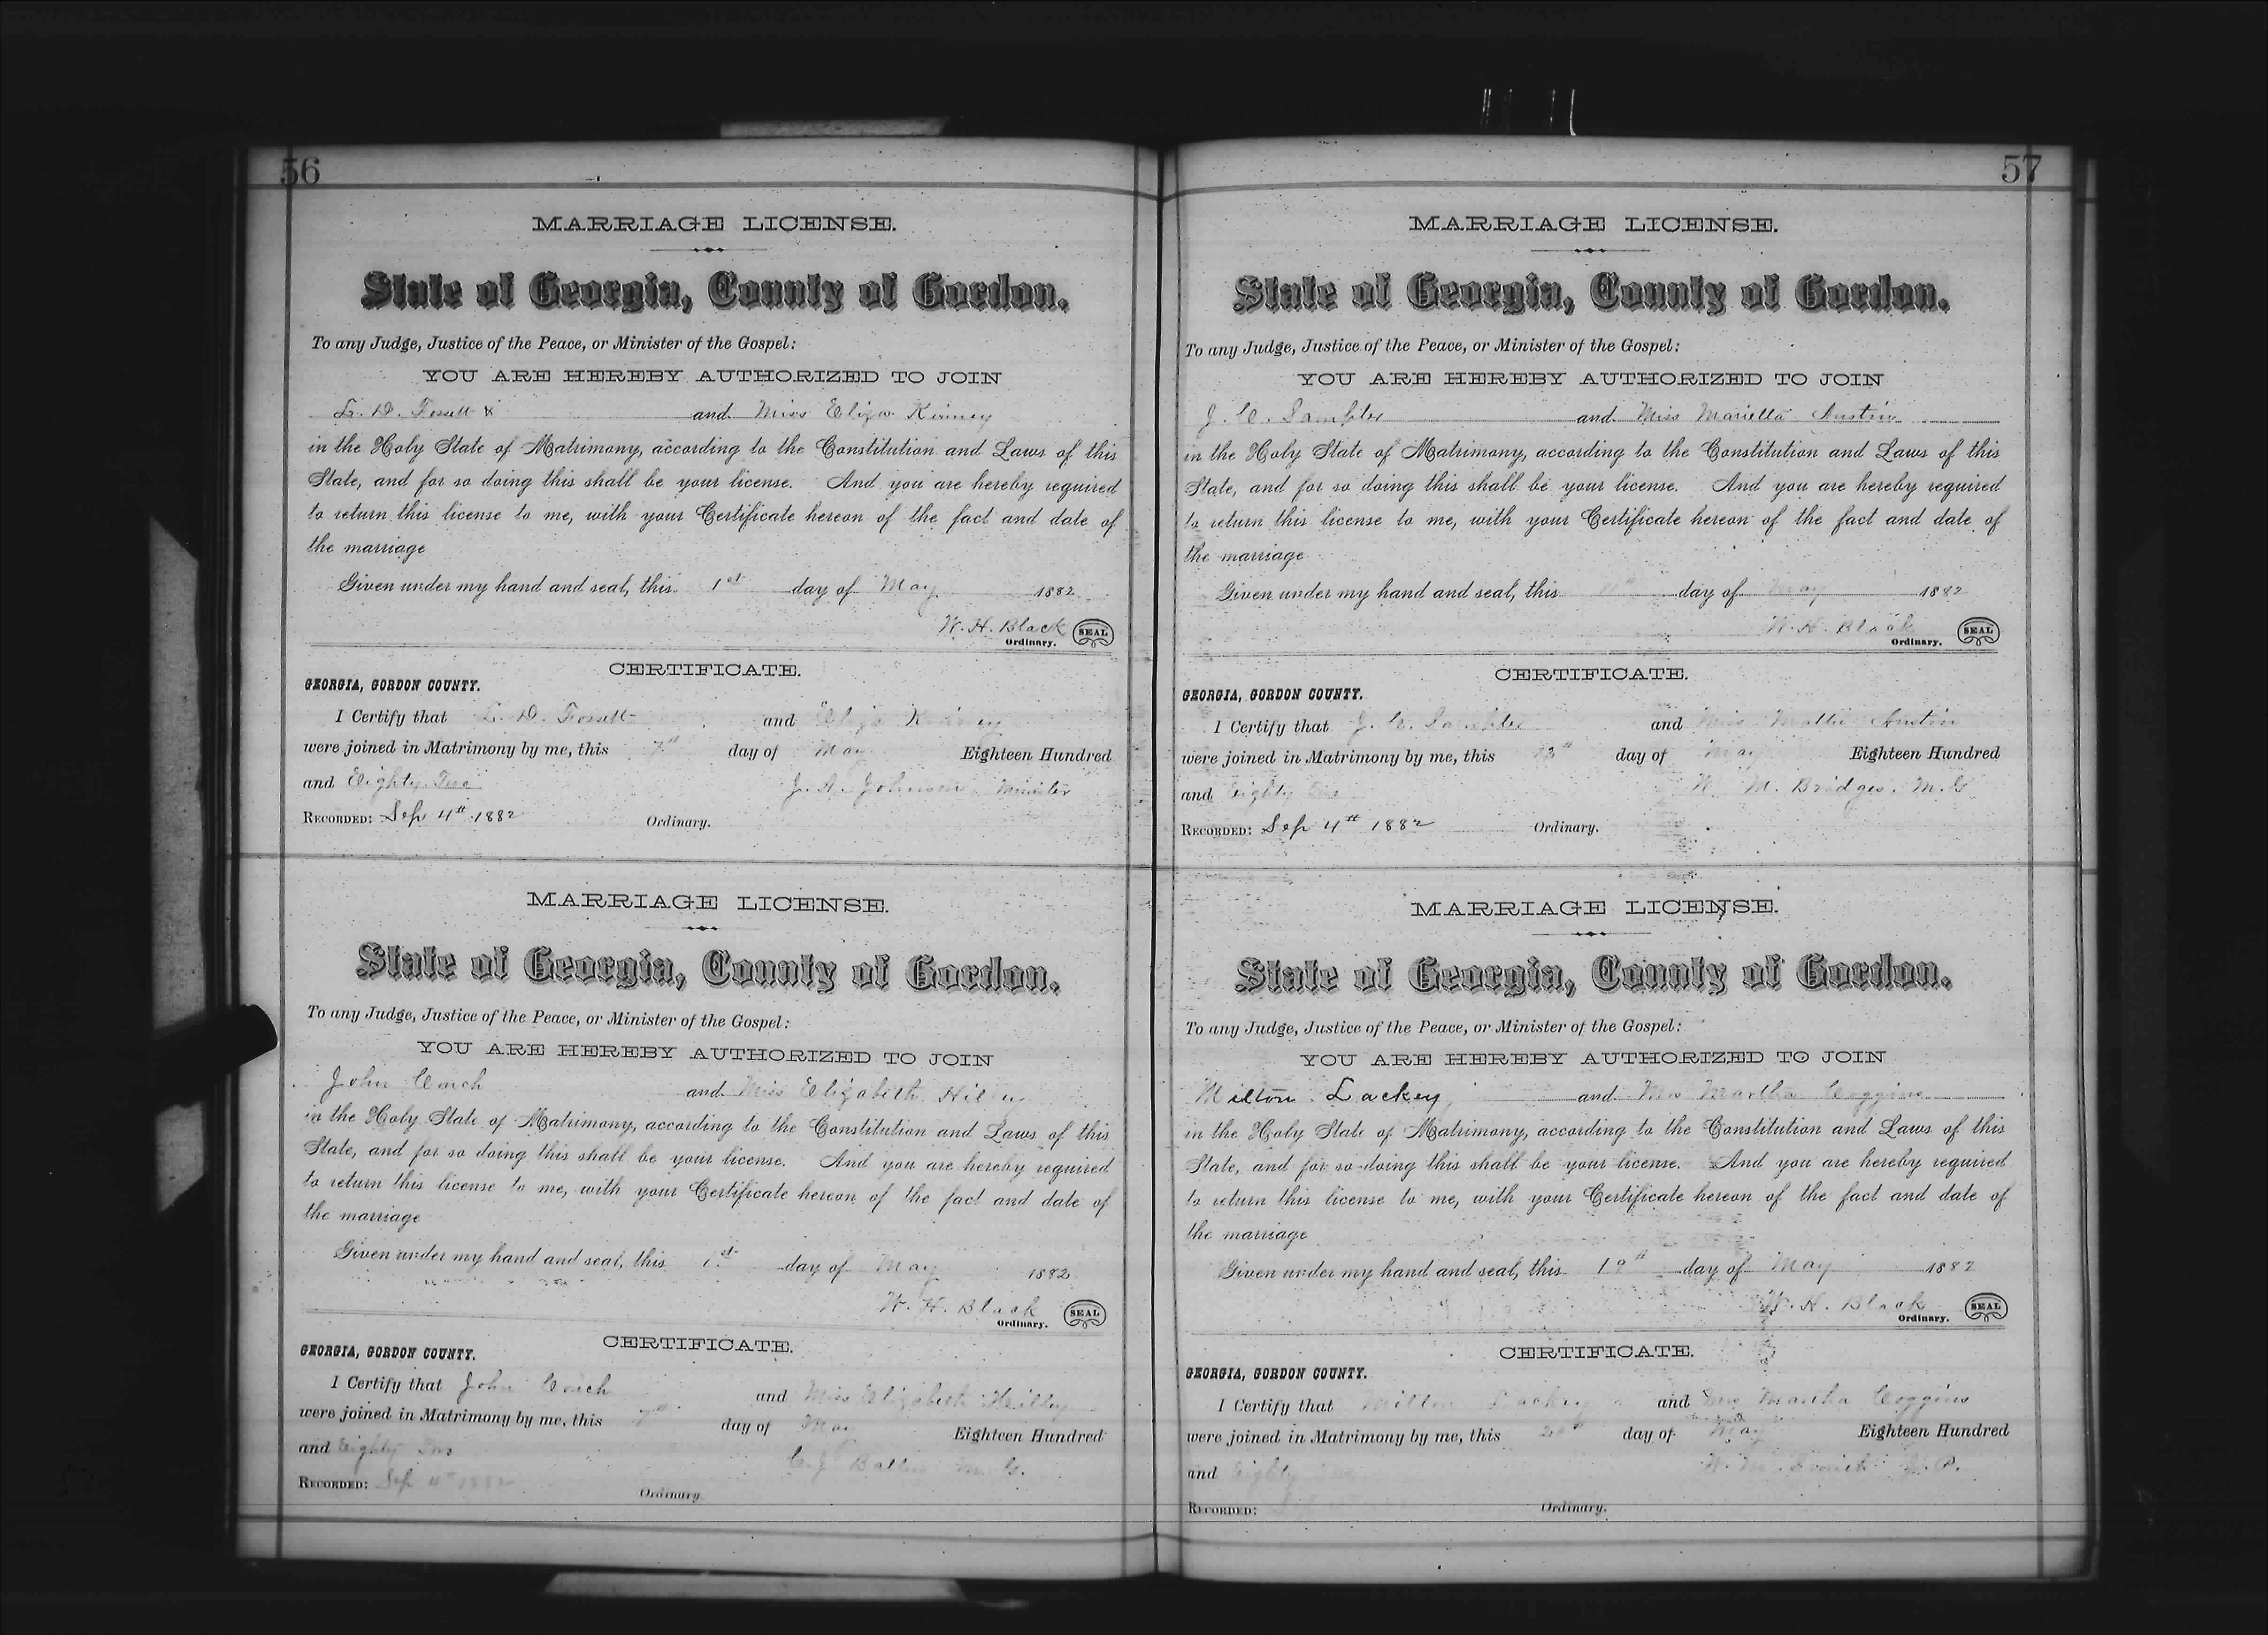 56
MARRIAGE LICENSE.
State of Georgia, County of Gordon.
To any Judge, Justice of the Peace, or Minister of the Gospel:
YOU ARE HEREBY AUTHORIZED TO JOIN
L. D. and Miss Eliza
in the Holy State of Matrimony, according to the Constitution and Laws of this
State, and for so doing this shall be your license. And you are hereby required
to return this license to me, with your Certificate hereon of the fact and date of
the marriage
Given under my hand and seal, this 1st day of May 1882
W. H. Black SEAL
Ordinary.
CERTIFICATE.
GEORGIA, GORDON COUNTY.
I Certify that L. D. and Eliza
were joined in Matrimony by me, this 7th day of May Eighteen Hundred
and Eighty Two
J. A. Johnson Minister
RECORDED: Sep 4th 1882 Ordinary.
MARRIAGE LICENSE.
State of Georgia, County of Gordon.
To any Judge, Justice of the Peace, or Minister of the Gospel:
YOU ARE HEREBY AUTHORIZED TO JOIN
John and Miss Elizabeth
in the Holy State of Matrimony, according to the Constitution and Laws of this
State, and for so doing this shall be your license. And you are hereby required
to return this license to me, with your Certificate hereon of the fact and date of
the marriage
Given under my hand and seal, this 1st day of May 1882
W. H. Black SEAL
Ordinary.
CERTIFICATE.
GEORGIA, GORDON COUNTY.
I Certify that John and Miss Elizabeth
were joined in Matrimony by me, this 7th day of May Eighteen Hundred
and Eighty Two
C. J. M. G.
RECORDED: Sep 4th 1882 Ordinary.
57
MARRIAGE LICENSE.
State of Georgia, County of Gordon.
To any Judge, Justice of the Peace, or Minister of the Gospel:
YOU ARE HEREBY AUTHORIZED TO JOIN
J. C. and Miss Marietta Austin
in the Holy State of Matrimony, according to the Constitution and Laws of this
State, and for so doing this shall be your license. And you are hereby required
to return this license to me, with your Certificate hereon of the fact and date of
the marriage
Given under my hand and seal, this day of May 1882
W. H. Black SEAL
Ordinary.
CERTIFICATE.
GEORGIA, GORDON COUNTY.
I Certify that J. C. and Miss Mattie Austin
were joined in Matrimony by me, this 13th day of May Eighteen Hundred
and Eighty Two
W. M. Bridges. M. G
RECORDED: Sep 4th 1882 Ordinary.
MARRIAGE LICENSE.
State of Georgia, County of Gordon.
To any Judge, Justice of the Peace, or Minister of the Gospel:
YOU ARE HEREBY AUTHORIZED TO JOIN
Milton Lackey and Mrs Martha Coggins
in the Holy State of Matrimony, according to the Constitution and Laws of this
State, and for so doing this shall be your license. And you are hereby required
to return this license to me, with your Certificate hereon of the fact and date of
the marriage
Given under my hand and seal, this 19th day of May 1882
W. H. Black SEAL
Ordinary.
CERTIFICATE.
GEORGIA, GORDON COUNTY.
I Certify that Milton Lackey and Mrs Martha Coggins
were joined in Matrimony by me, this day of May Eighteen Hundred
and Eighty
J. P.
RECORDED: Ordinary.